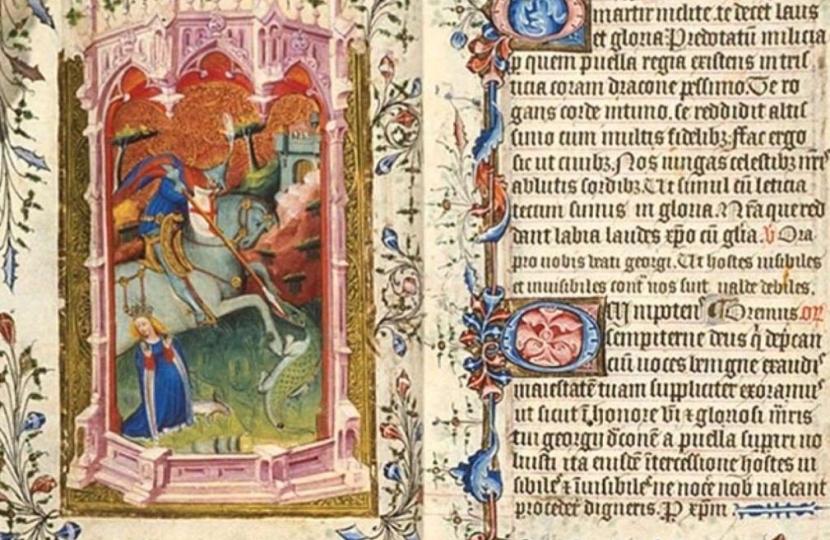 martir inclite. te decet laus
et gloria. Predotatū milicia
p quem puella regia existens in tris
ticia coram dracone pessimo. Te ro
gans corde intimo. se reddidit altis
simo cum multis fidelibȝ. Fac ergo
sic ut ciuibȝ. Nos iungas celestibȝ
ablutis sordibȝ. Ut simul cū leticia
tecum simus in gloria. Nr̄a que red
dant labia laudes xp̄o cū glīa. v Ora
pro nobis beati georgi. Ut hostes uisibiles
et inuisibiles cont̄ nos sint ualde debiles.
Omnipotens Oremus. or̄
sempiterne deus q̄ dep̄can
ciū uoces benigne exaudis
maiestatē tuam suppliciter exoramus
ut sicut ī honore bt̄i ⁊ gloriosi m̄ris
tui georgij dc̄onē a puella sup̄ri uo
luisti ita eiusdē ītercessione hostes ui
sibiles ⁊ īuisibiles ne nocē nob ualeant
procedē digneris. P xp̄m.